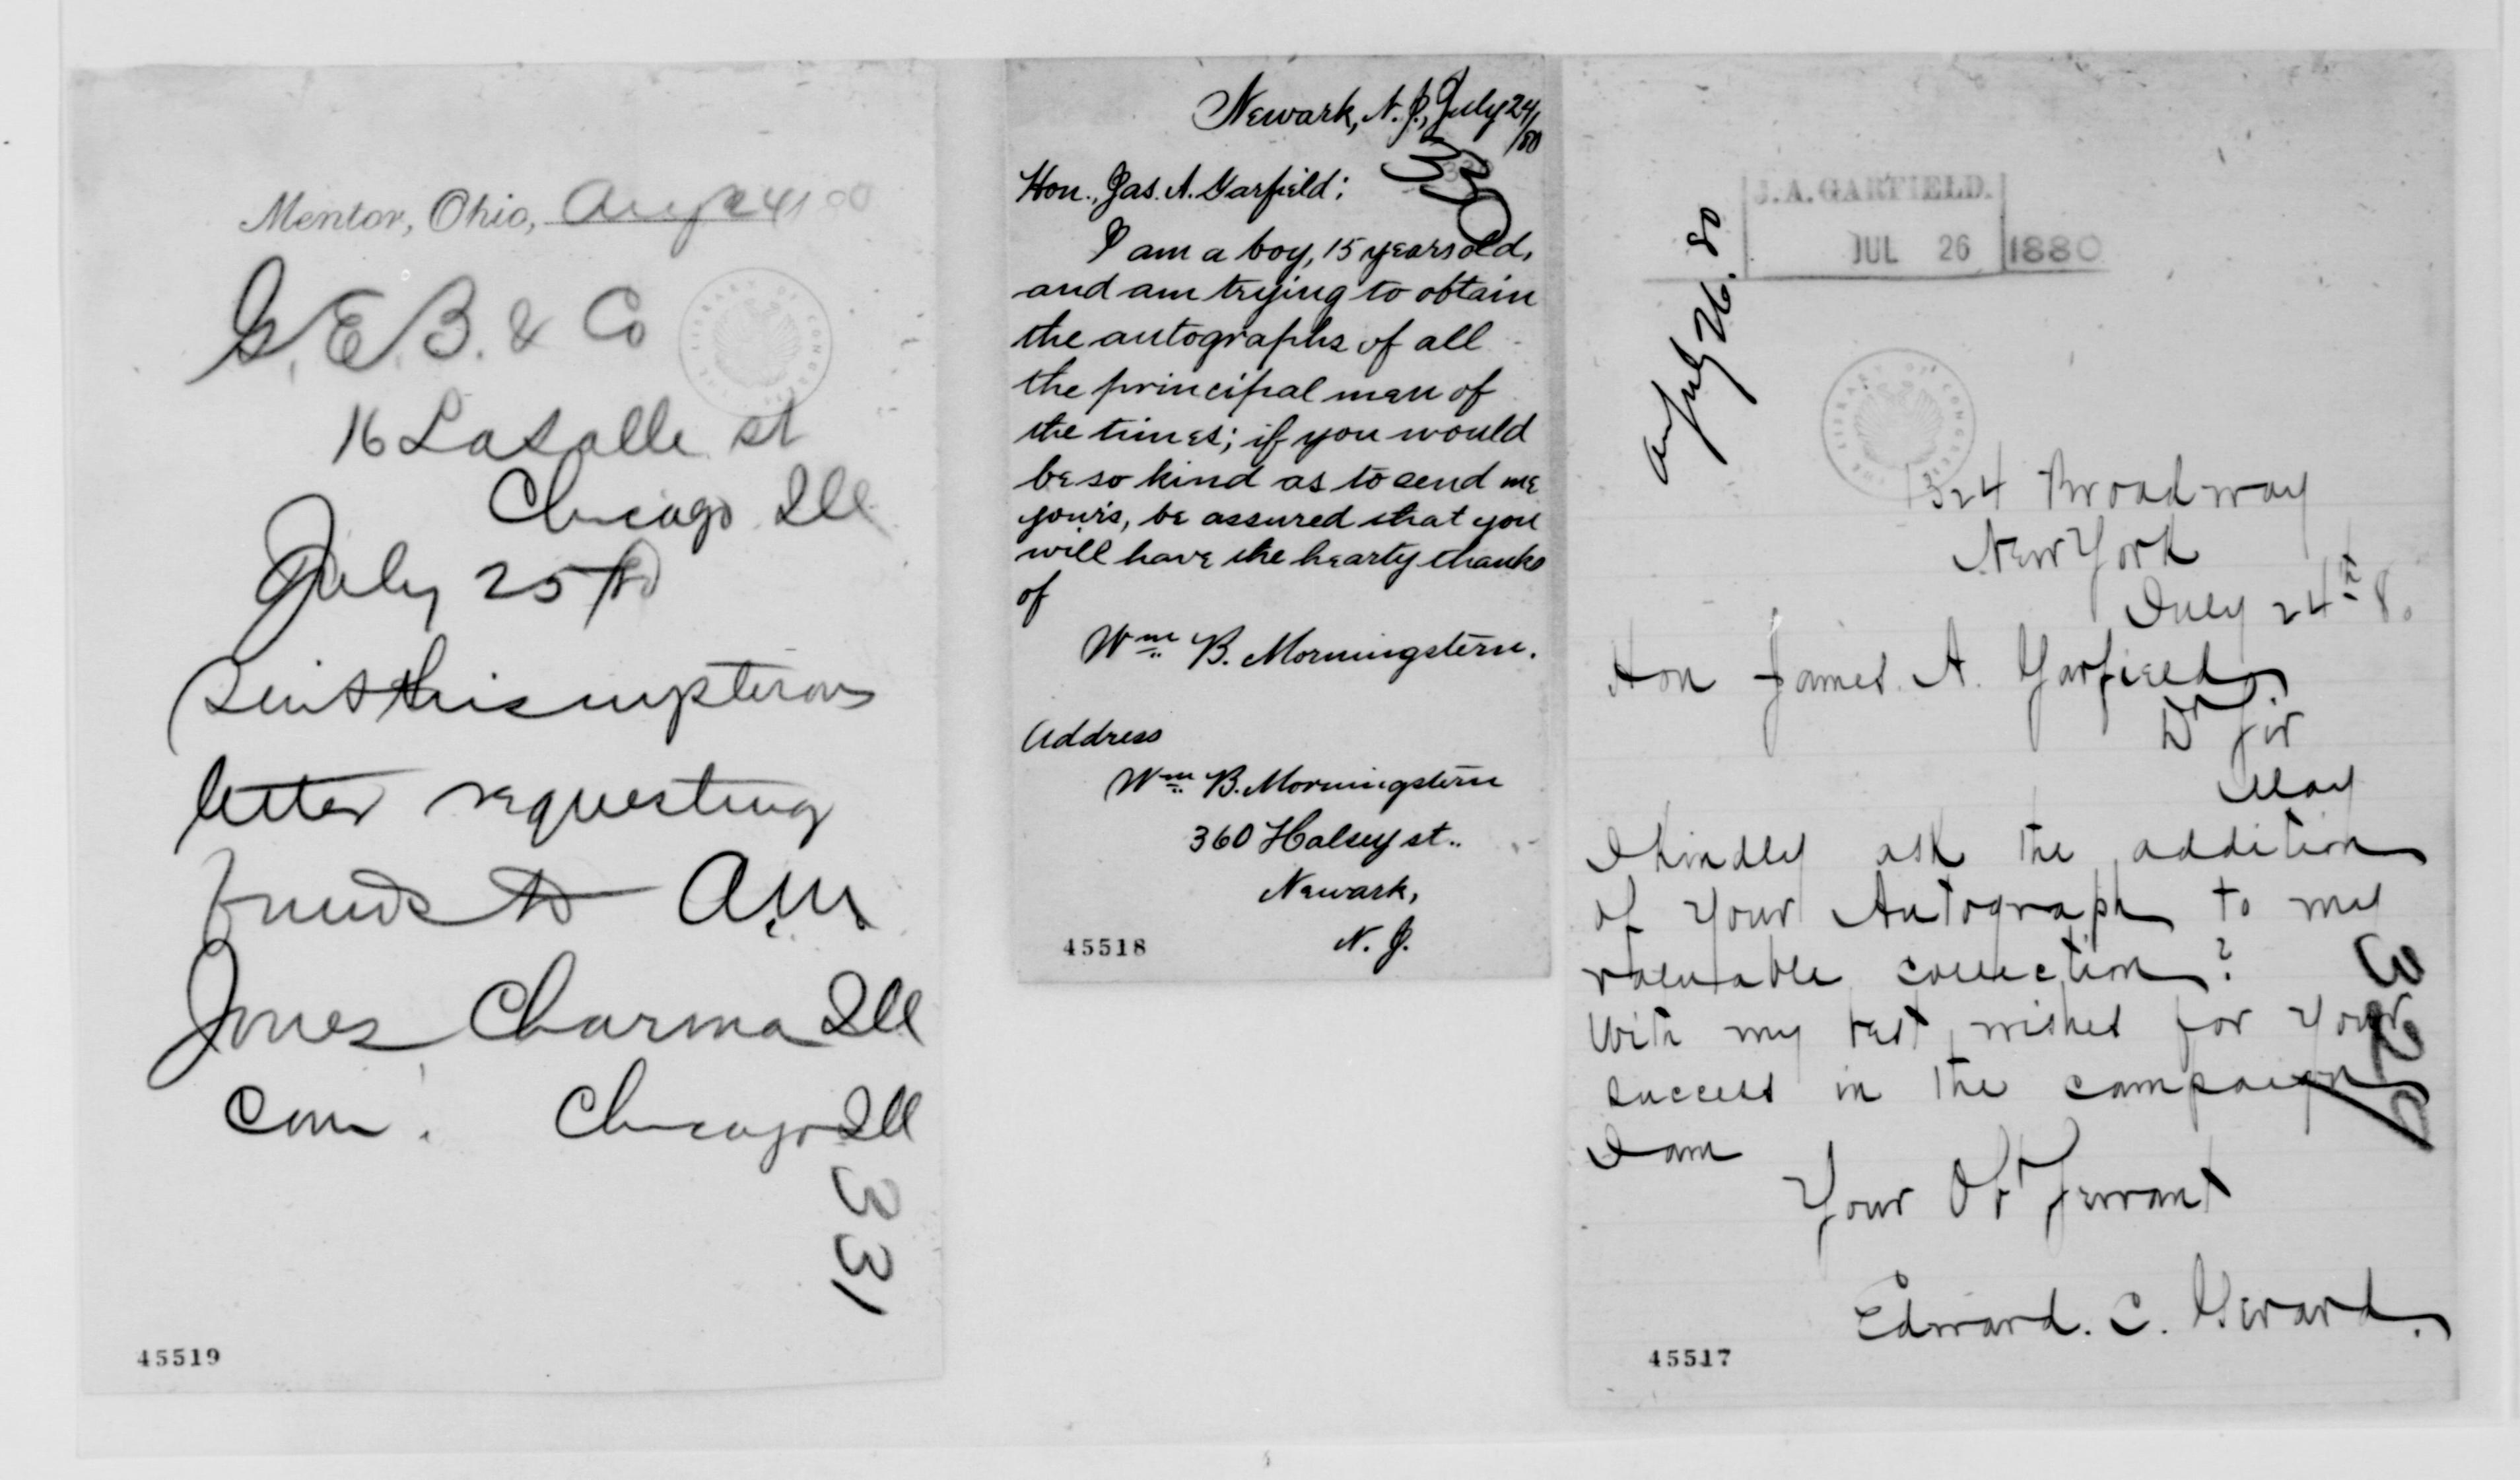 Mentor, Ohio, Aug 24 1880
G. E. B. & Co
16 LaSalle st
Chicago Ill
July 25th
Sent this mysterious
letter requesting
funds to A.M.
Jones Charma Ill
Com. Chicago Ill
331
45519
Newark, N. J., July 24/80
330
Hon. Jas. A. Garfield:
I am a boy, 15 years old,
and am trying to obtain
the autographs of all
the principal men of
the times; if you would
be so kind as to send me
yours, be assured that you
will have the hearty thanks
of
Wm B. Morningstern.
Address
Wm B. Morningstern
360 Halsey st.
Newark,
N. J.
45518
J. A. GARFIELD.
JUL 26 1880
July 26. 80
THE LIBRARY OF CONGRESS
324 Broadway
New York
July 24th 80
Hon James. A. Garfield
Dr Sir
May
I kindly ask the addition
of Your Autograph to my
valuable collection?
With my best wishes for Your
success in the campaign
I am
Your Obt Servant
Edward. C. Gerard.
329
45517